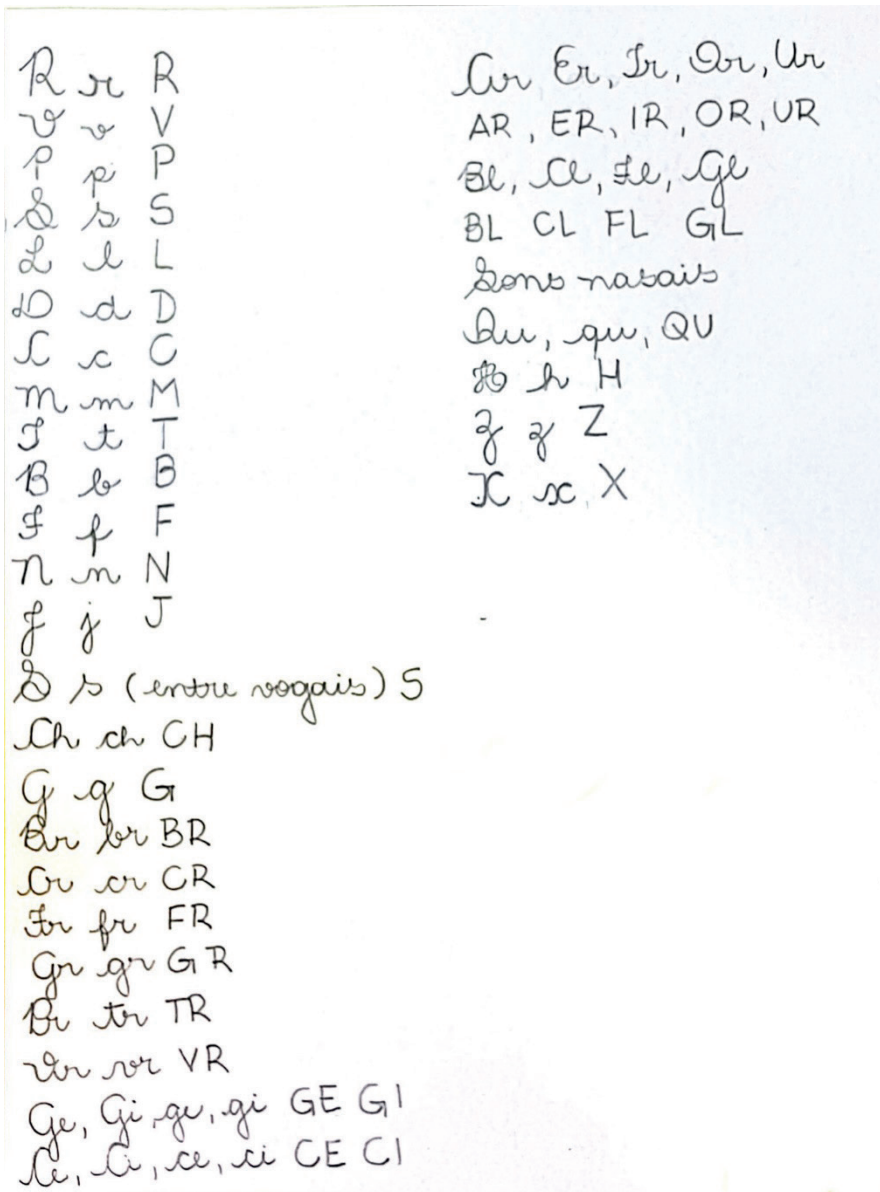 R r R
V v V
P p P
S s S
L l L
D d D
C c C
M m M
T t T
B b B
F f F
N n N
J j J
S s (entre vogais) S
Ch ch CH
G g G
Br br BR
Cr cr CR
Fr fr FR
Gr gr GR
Br tr TR
Vr vr VR
Ge, Gi, ge, gi GE GI
Ce, Ci, ce, ci CE CI
Ar Er, Ir, Or, Ur
AR, ER, IR, OR, UR
Bl, Cl, Fl, Gl
BL CL FL GL
Sons nasais
Qu, qu, QU
H h H
Z z Z
X x X